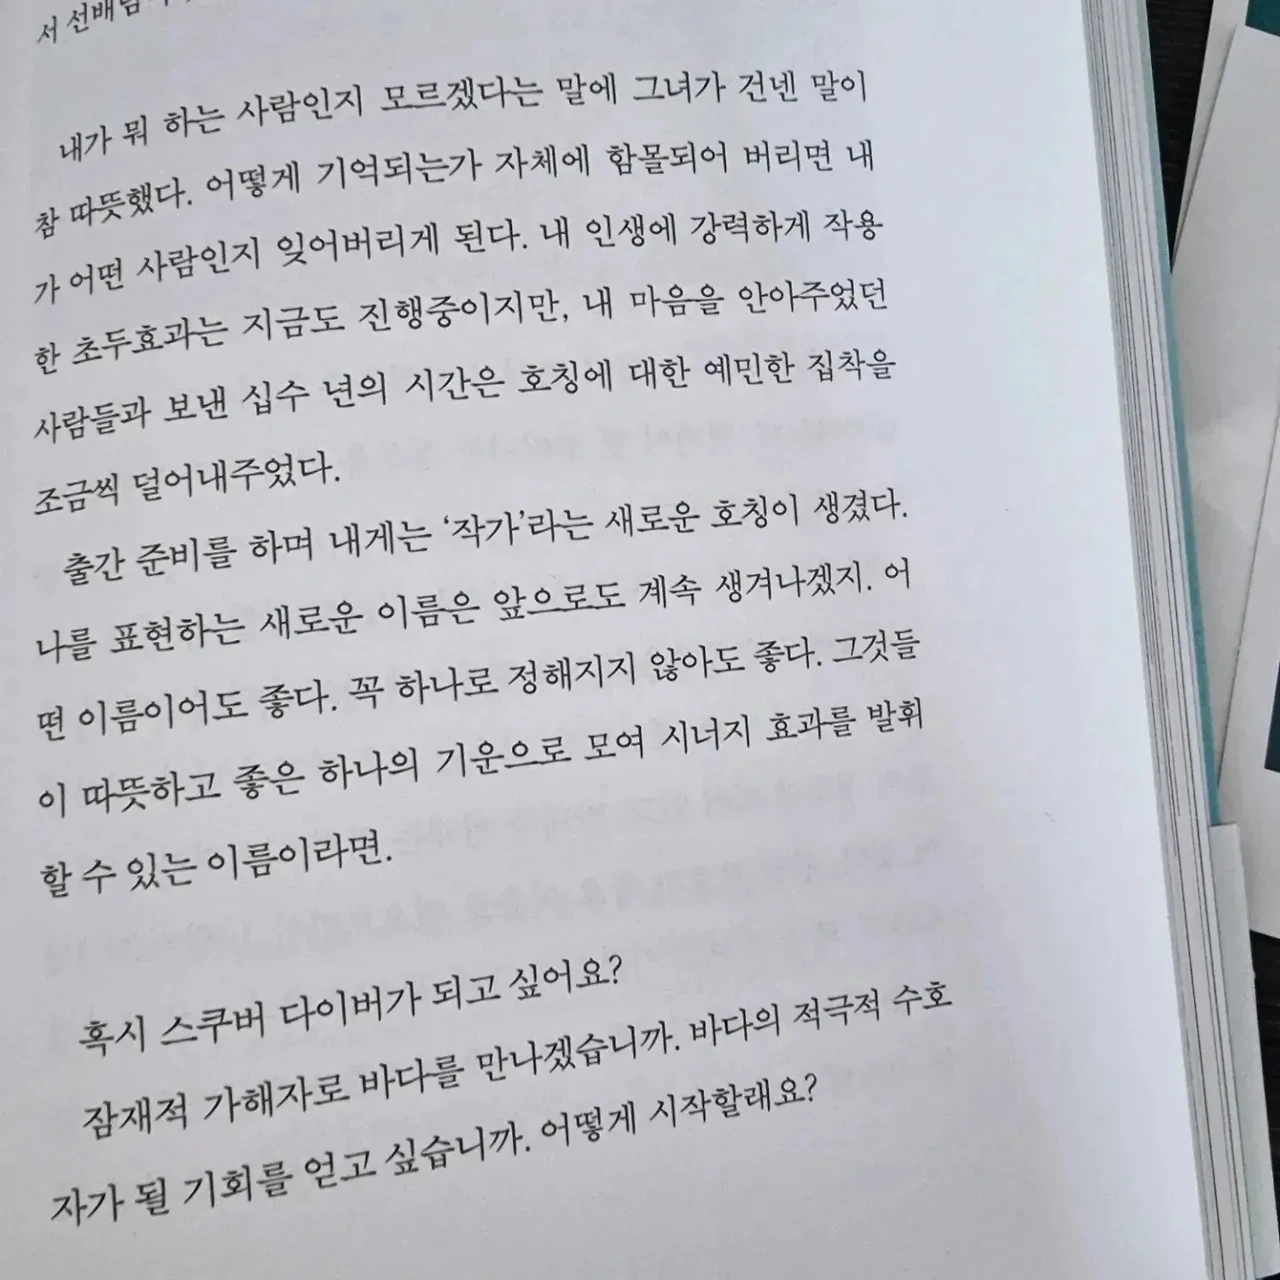 서 선배님
내가 뭐 하는 사람인지 모르겠다는 말에 그녀가 건넨 말이
참 따뜻했다. 어떻게 기억되는가 자체에 함몰되어 버리면 내
가 어떤 사람인지 잊어버리게 된다. 내 인생에 강력하게 작용
한 초두효과는 지금도 진행중이지만, 내 마음을 안아주었던
사람들과 보낸 십수 년의 시간은 호칭에 대한 예민한 집착을
조금씩 덜어내주었다.
출간 준비를 하며 내게는 ‘작가’라는 새로운 호칭이 생겼다.
나를 표현하는 새로운 이름은 앞으로도 계속 생겨나겠지. 어
떤 이름이어도 좋다. 꼭 하나로 정해지지 않아도 좋다. 그것들
이 따뜻하고 좋은 하나의 기운으로 모여 시너지 효과를 발휘
할 수 있는 이름이라면.
혹시 스쿠버 다이버가 되고 싶어요?
잠재적 가해자로 바다를 만나겠습니까. 바다의 적극적 수호
자가 될 기회를 얻고 싶습니까. 어떻게 시작할래요?